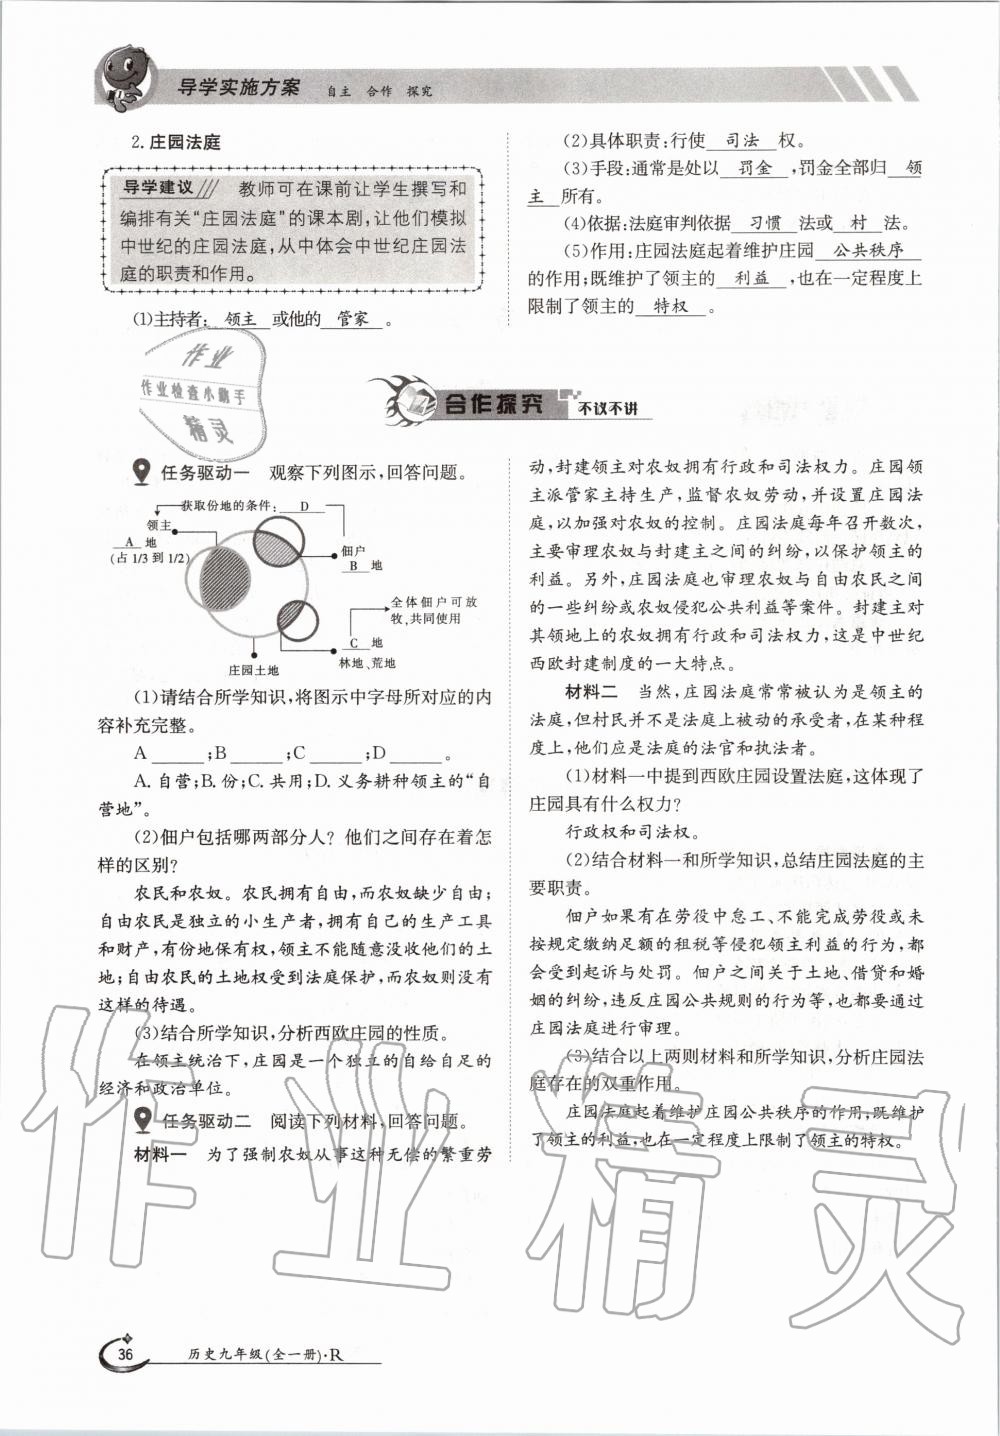 导学实施方案 自主 合作 探究
2. 庄园法庭
导学建议/// 教师可在课前让学生撰写和
编排有关“庄园法庭”的课本剧,让他们模拟
中世纪的庄园法庭,从中体会中世纪庄园法
庭的职责和作用。
(1)主持者: 领主 或他的 管家 。
(2)具体职责:行使 司法 权。
(3)手段:通常是处以 罚金 ,罚金全部归 领
主 所有。
(4)依据:法庭审判依据 习惯 法或 村 法。
(5)作用:庄园法庭起着维护庄园 公共秩序
的作用;既维护了领主的 利益 ,也在一定程度上
限制了领主的 特权 。
作业
作业检查小助手
精灵
合作探究 不议不讲
任务驱动一 观察下列图示,回答问题。
获取份地的条件: D
领主
A 地
(占 1/3 到 1/2)
佃户
B 地
全体佃户可放
牧,共同使用
C 地
林地、荒地
庄园土地
(1)请结合所学知识,将图示中字母所对应的内
容补充完整。
A ;B ;C ;D 。
A. 自营;B. 份;C. 共用;D. 义务耕种领主的“自
营地”。
(2)佃户包括哪两部分人? 他们之间存在着怎
样的区别?
农民和农奴。农民拥有自由,而农奴缺少自由;
自由农民是独立的小生产者,拥有自己的生产工具
和财产,有份地保有权,领主不能随意没收他们的土
地;自由农民的土地权受到法庭保护,而农奴则没有
这样的待遇。
(3)结合所学知识,分析西欧庄园的性质。
在领主统治下,庄园是一个独立的自给自足的
经济和政治单位。
任务驱动二 阅读下列材料,回答问题。
材料一 为了强制农奴从事这种无偿的繁重劳
动,封建领主对农奴拥有行政和司法权力。庄园领
主派管家主持生产,监督农奴劳动,并设置庄园法
庭,以加强对农奴的控制。庄园法庭每年召开数次,
主要审理农奴与封建主之间的纠纷,以保护领主的
利益。另外,庄园法庭也审理农奴与自由农民之间
的一些纠纷或农奴侵犯公共利益等案件。封建主对
其领地上的农奴拥有行政和司法权力,这是中世纪
西欧封建制度的一大特点。
材料二 当然,庄园法庭常常被认为是领主的
法庭,但村民并不是法庭上被动的承受者,在某种程
度上,他们应是法庭的法官和执法者。
(1)材料一中提到西欧庄园设置法庭,这体现了
庄园具有什么权力?
行政权和司法权。
(2)结合材料一和所学知识,总结庄园法庭的主
要职责。
佃户如果有在劳役中怠工、不能完成劳役或未
按规定缴纳足额的租税等侵犯领主利益的行为,都
会受到起诉与处罚。佃户之间关于土地、借贷和婚
姻的纠纷,违反庄园公共规则的行为等,也都要通过
庄园法庭进行审理。
(3)结合以上两则材料和所学知识,分析庄园法
庭存在的双重作用。
庄园法庭起着维护庄园公共秩序的作用;既维护
了领主的利益,也在一定程度上限制了领主的特权。
作业精灵
36 历史九年级(全一册)·R